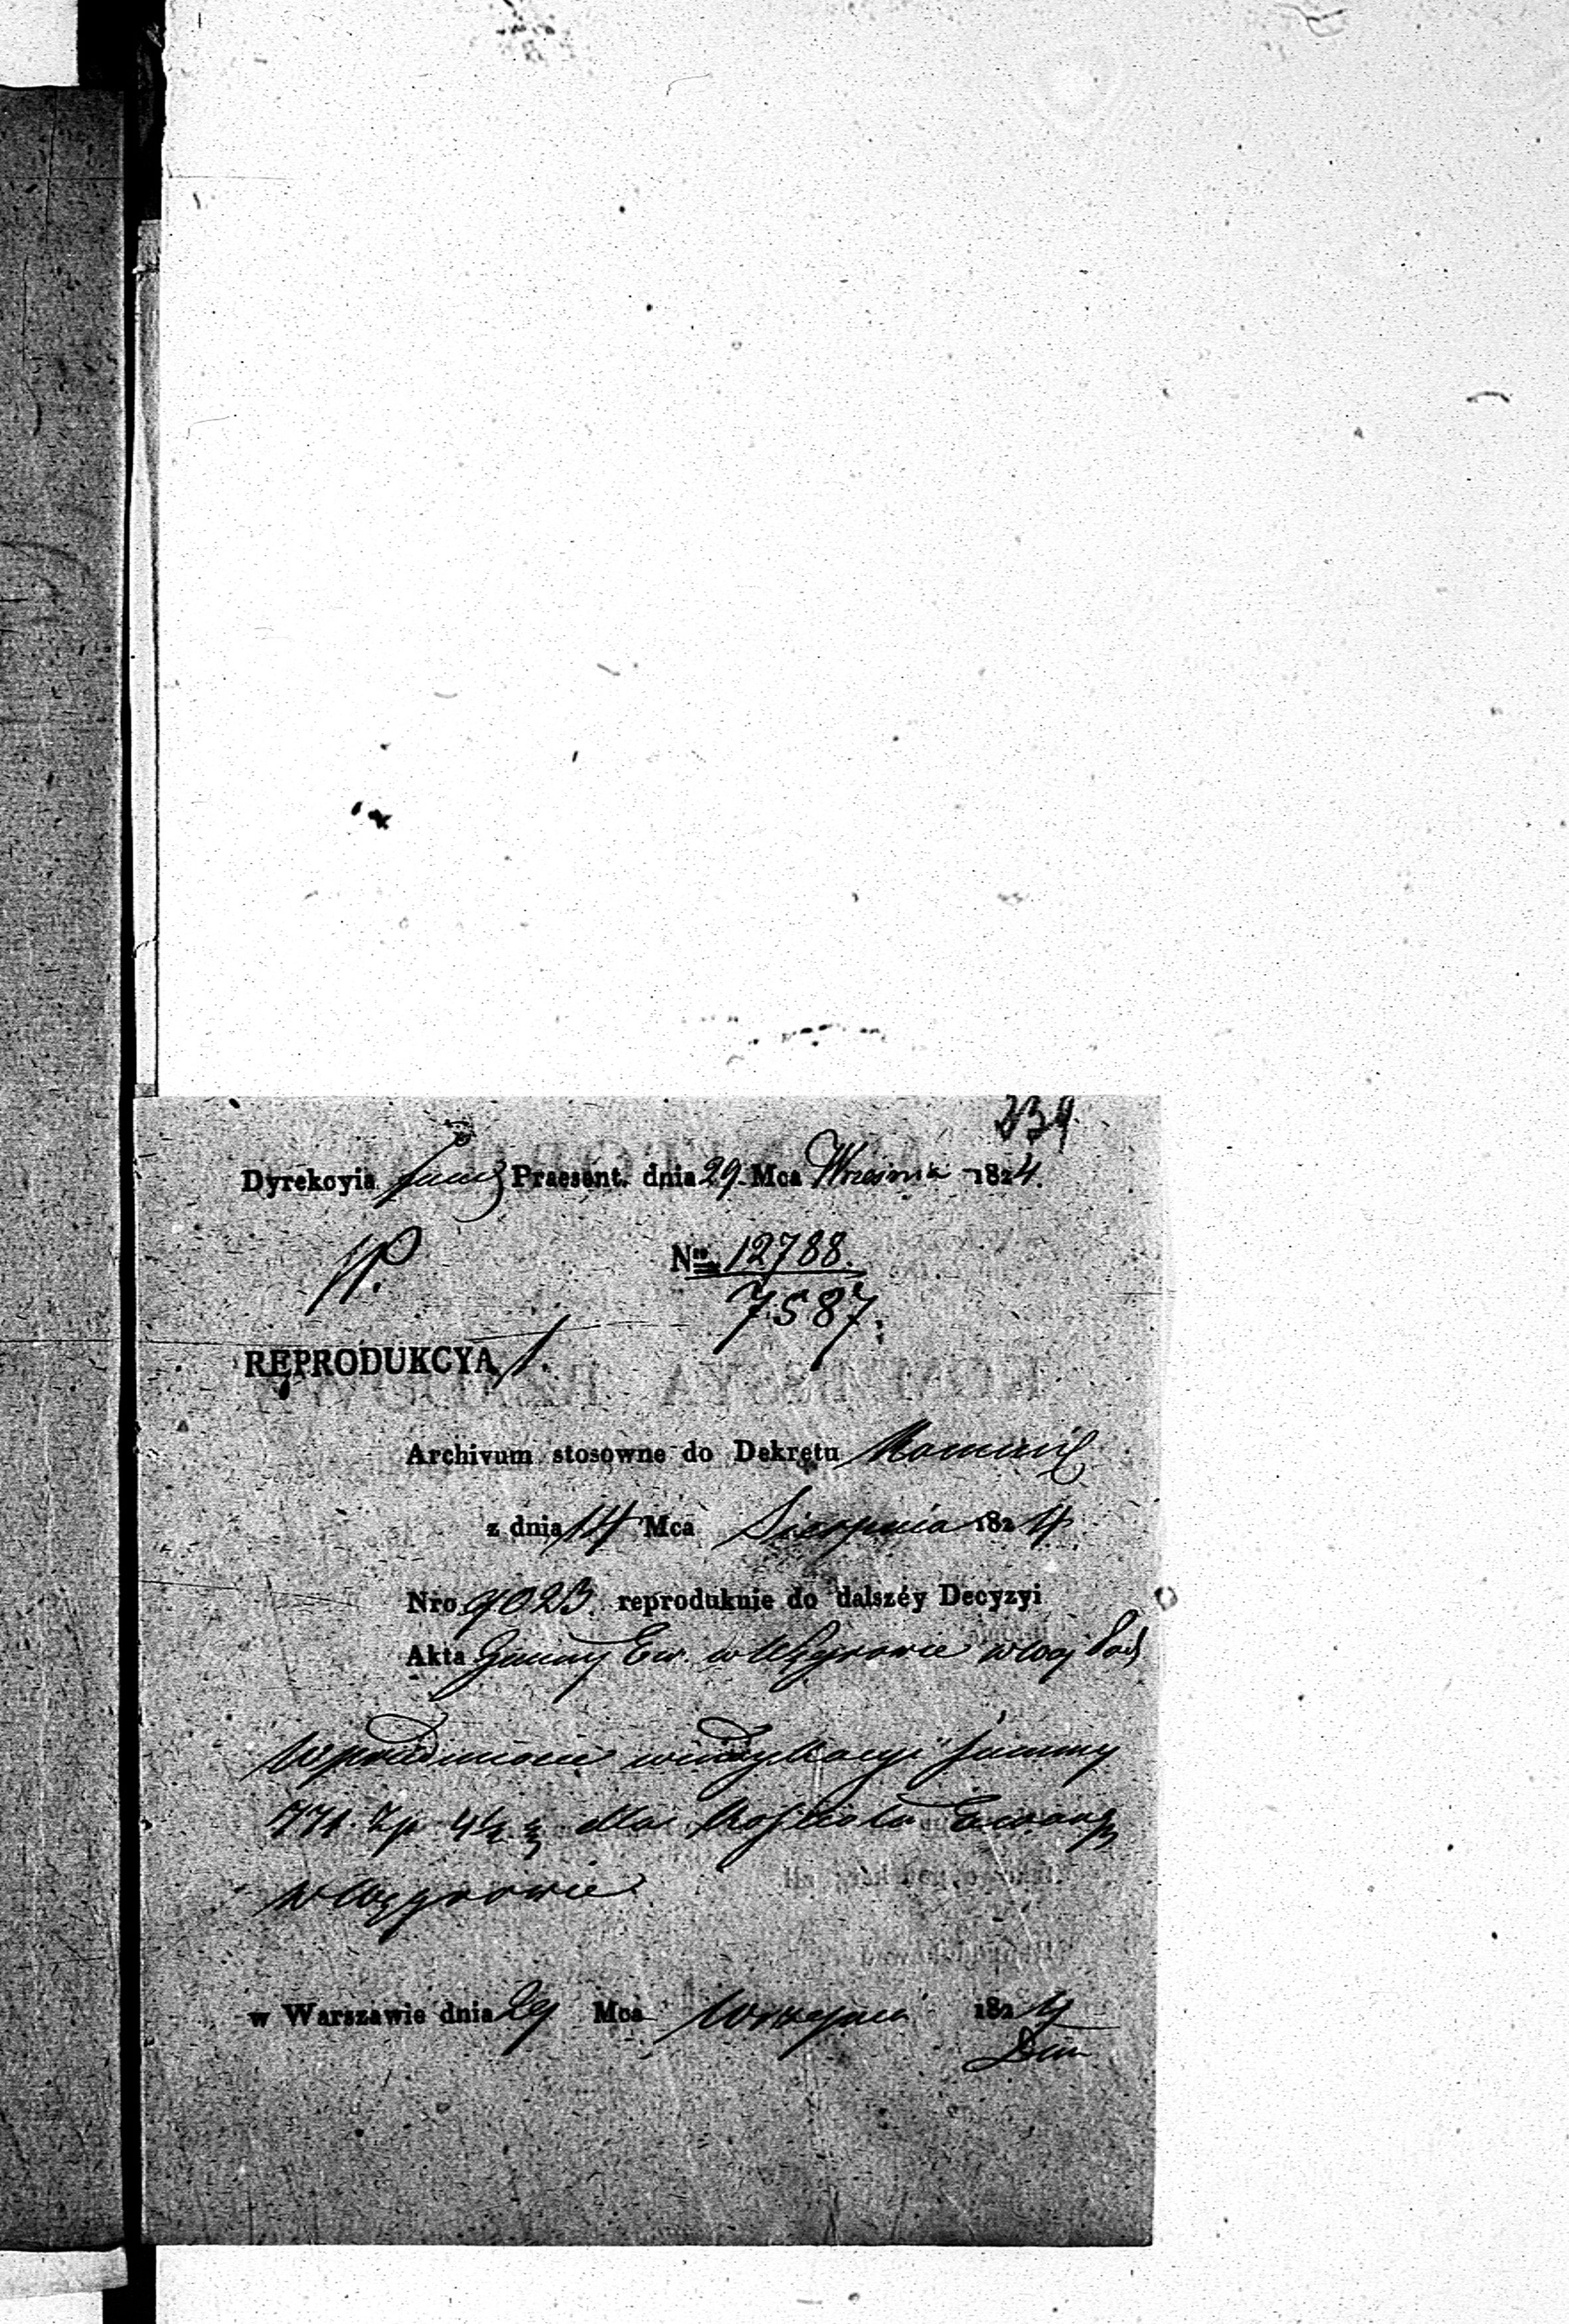 234
Dyrekcyia Praesent. dnia 29 Mca Wrzesnia 1824.
Nro 12788.
7587.
REPRODUKCYA 1.
Archivum stosowne do Dekretu
z dnia 14 Mca Sierpnia 1824
Nro 9023. reprodukuie do dalszéy Decyzyi
Akta Gminy Ew. w Węgrowie w Woj Pod
w przedmiocie windykacyi summy
771. Zp dla Kosciola Ewang
w Węgrowie
w Warszawie dnia 29 Mca Września 1824